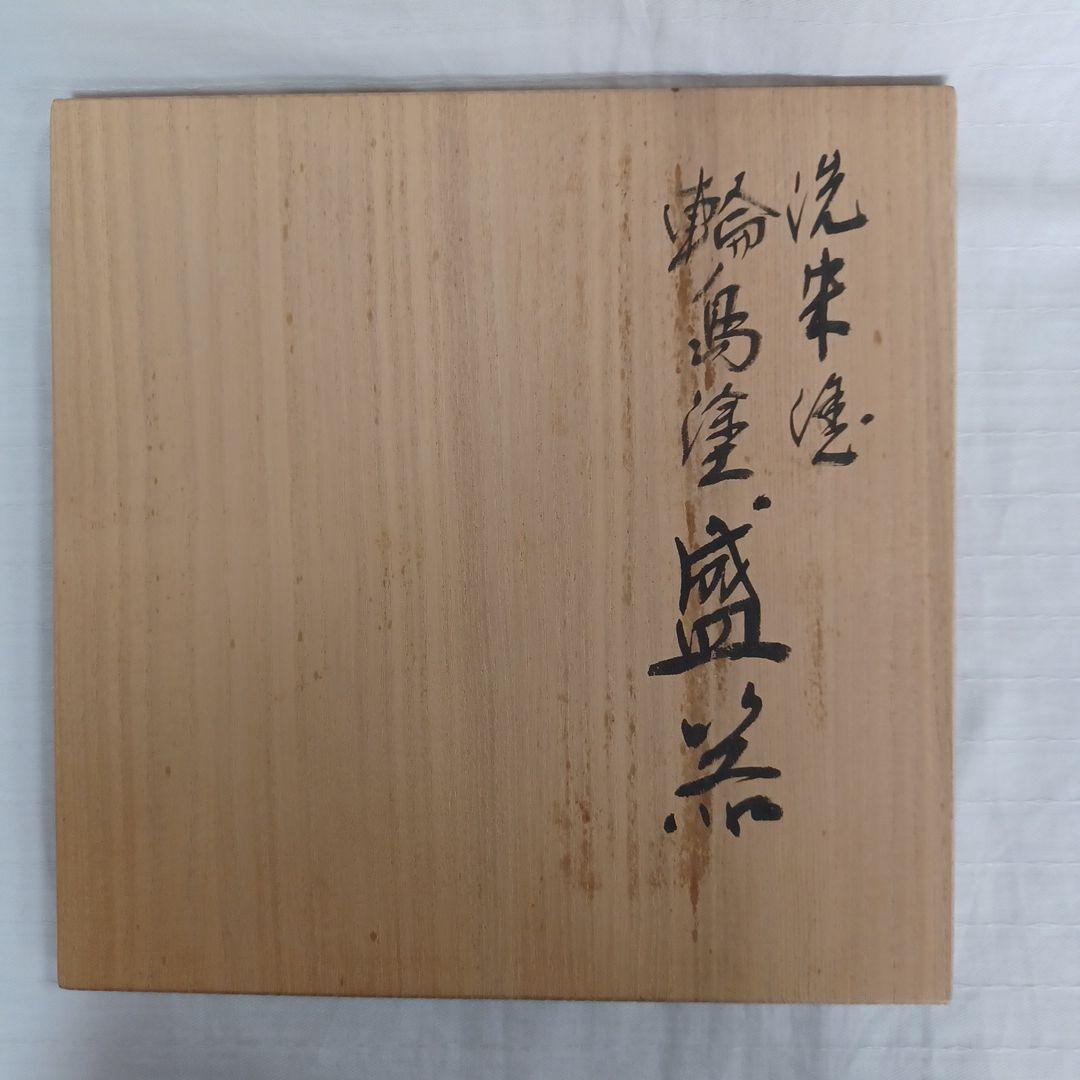 洗朱塗
輪島塗盛器